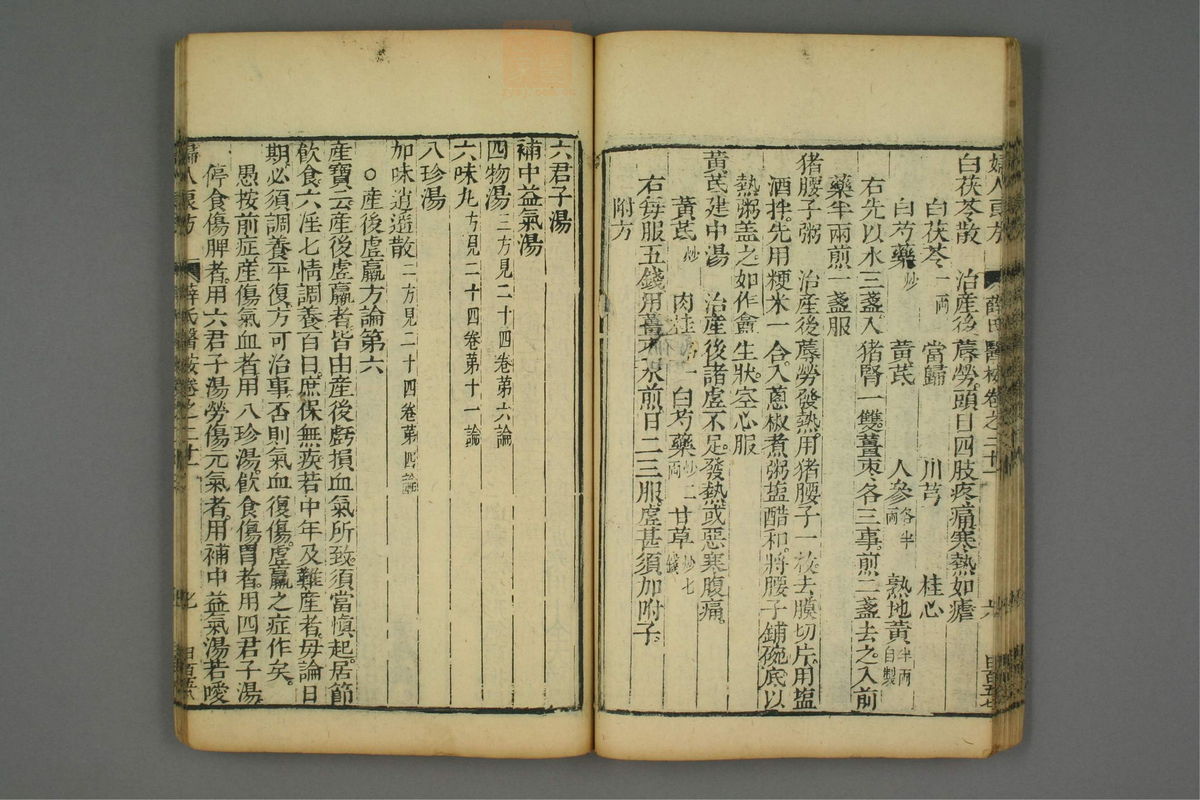 婦人良方 薛氏醫按卷之二十一
白茯苓散 治產後蓐勞頭目四肢疼痛寒熱如瘧
白茯苓一兩 當歸 川芎 桂心
白芍藥炒 黃芪 人參各半兩 熟地黃半兩自製
右先以水三盞入猪腎一雙薑棗各三事煎二盞去之入前
藥半兩煎一盞服
猪腰子粥 治產後蓐勞發熱用猪腰子一枚去膜切片用塩
酒拌先用粳米一合入蔥椒煮粥塩醋和將腰子鋪碗底以
熱粥盖之如作盦生狀空心服
黃芪建中湯 治產後諸虛不足發熱或惡寒腹痛
黃芪炒 肉桂各一 白芍藥炒二兩 甘草炒七錢
右每服五錢用薑棗水煎日二三服虛甚須加附子
附方
六君子湯
補中益氣湯
四物湯三方見二十四卷第六論
六味丸方見二十四卷第十一論
八珍湯
加味逍遥散二方見二十四卷第四論
○產後虛羸方論第六
產寶云產後虛羸者皆由產後虧損血氣所致須當慎起居節
飲食六淫七情調養百日庶保無疾若中年及難產者毋論日
期必須調養平復方可治事否則氣血復傷虛羸之症作矣
愚按前症產傷氣血者用八珍湯飲食傷胃者用四君子湯
停食傷脾者用六君子湯勞傷元氣者用補中益氣湯若噯
婦人良方 薛氏醫按卷之二十一